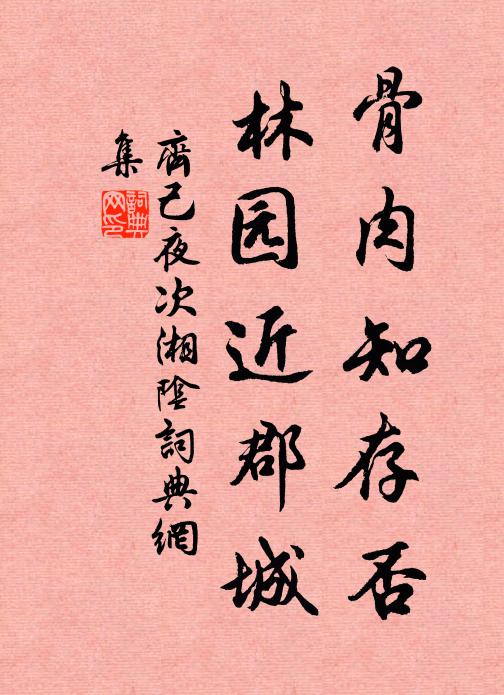 骨肉知存否
林园近郡城
齊己夜次湘陰詞典網
集
詞典
网印